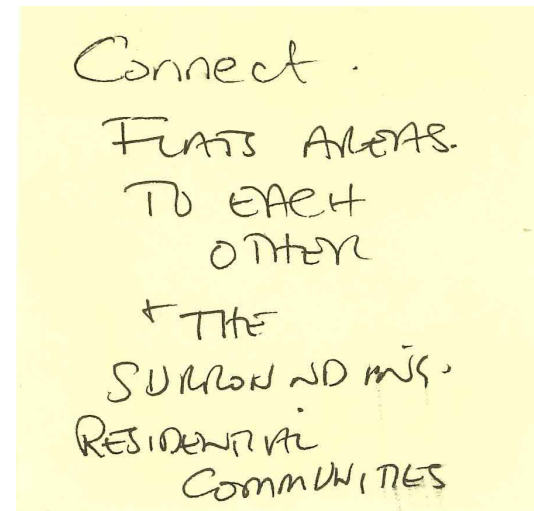 Connect.
FLATS AREAS.
TO EACH
OTHER
+ THE
SURRONNDING.
RESIDENTIAL
COMMUNITIES